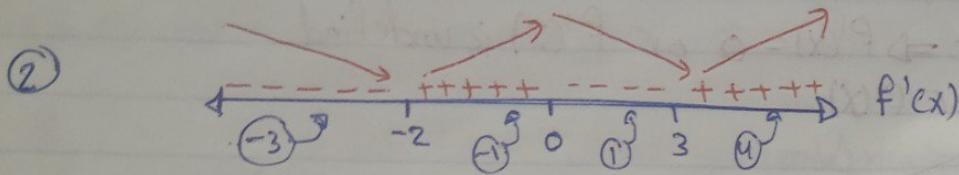 ②
- - - - - +++++ - - - - + + + + + f'(x)
-3 -2 -1 0 1 3 4